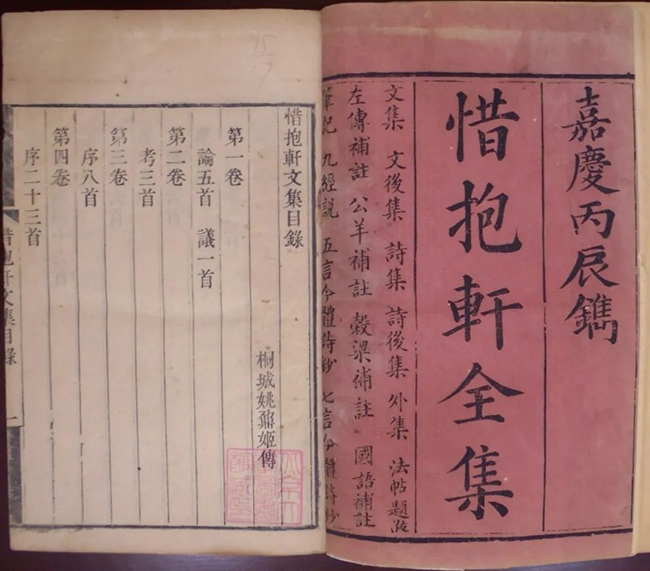 嘉慶丙辰鐫
惜抱軒全集
文集 文後集 詩集 詩後集 外集 法帖題跋
左傳補註 公羊補註 穀梁補註 國語補註
筆記 九經說 五言今體詩鈔 七言今體詩鈔
惜抱軒文集目錄
桐城姚鼐姬傳
第一卷
論五首 議一首
第二卷
考三首
第三卷
序八首
第四卷
序二十三首
惜抱軒文集目錄 一